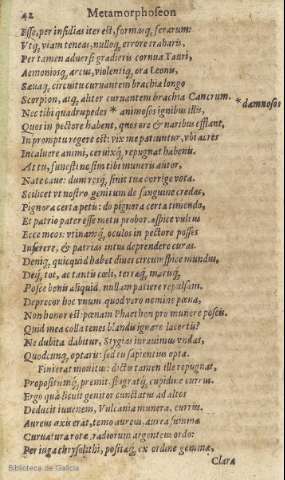 42 Metamorphoseon
Esse, per insidias iter est, formasq, ferarum:
Vtq, viam teneas, nulloq, errore traharis,
Per tamen aduersi gradieris cornua Tauri,
Aemoniosq, arcus, violentiq, ora Leonis,
Sæuaq, circuitu curuantem brachia longo
Scorpion, atq, aliter curuantem brachia Cancrum.
* damnosos
Nec tibi quadrupedes * animosos ignibus illis,
Quos in pectore habent, quos ore & naribus efflant,
In promptu regere est: vix me patiuntur, vbi acres
Incaluere animi, ceruixq, repugnat habenis.
At tu, funesti ne sim tibi muneris autor,
Nate caue: dum resq, sinit tua corrige vota.
Scilicet vt nostro genitum de sanguine credas,
Pignora certa petis: do pignora certa timendo,
Et patrio pater esse metu probor. aspice vultus
Ecce meos: vtinamq, oculos in pectore posses
Inserere, & patrias intus deprendere curas.
Deniq, quicquid habet diues circumspice mundus,
Deq, tot, ac tantis cœli, terræq, marisq,
Posce bonis aliquid. nullam patiere repulsam.
Deprecor hoc vnum quod vero nomine pœna,
Non honor est: pœnam Phaethon pro munere poscis.
Quid mea colla tenes blandis ignare lacertis?
Ne dubita dabitur, Stygias iurauimus vndas,
Quodcunq, optaris: sed tu sapientius opta.
Finierat monitus: dictis tamen ille repugnat,
Propositumq, premit. flagratq, cupidine currus.
Ergo quà licuit genitor cunctatus ad altos
Deducit iuuenem, Vulcania munera, currus.
Aureus axis erat, temo aureus, aurea summæ
Curuatura rotæ, radiorum argenteus ordo:
Per iuga chrysolithi, positæq, ex ordine gemmæ,
Clara
Biblioteca de Galicia